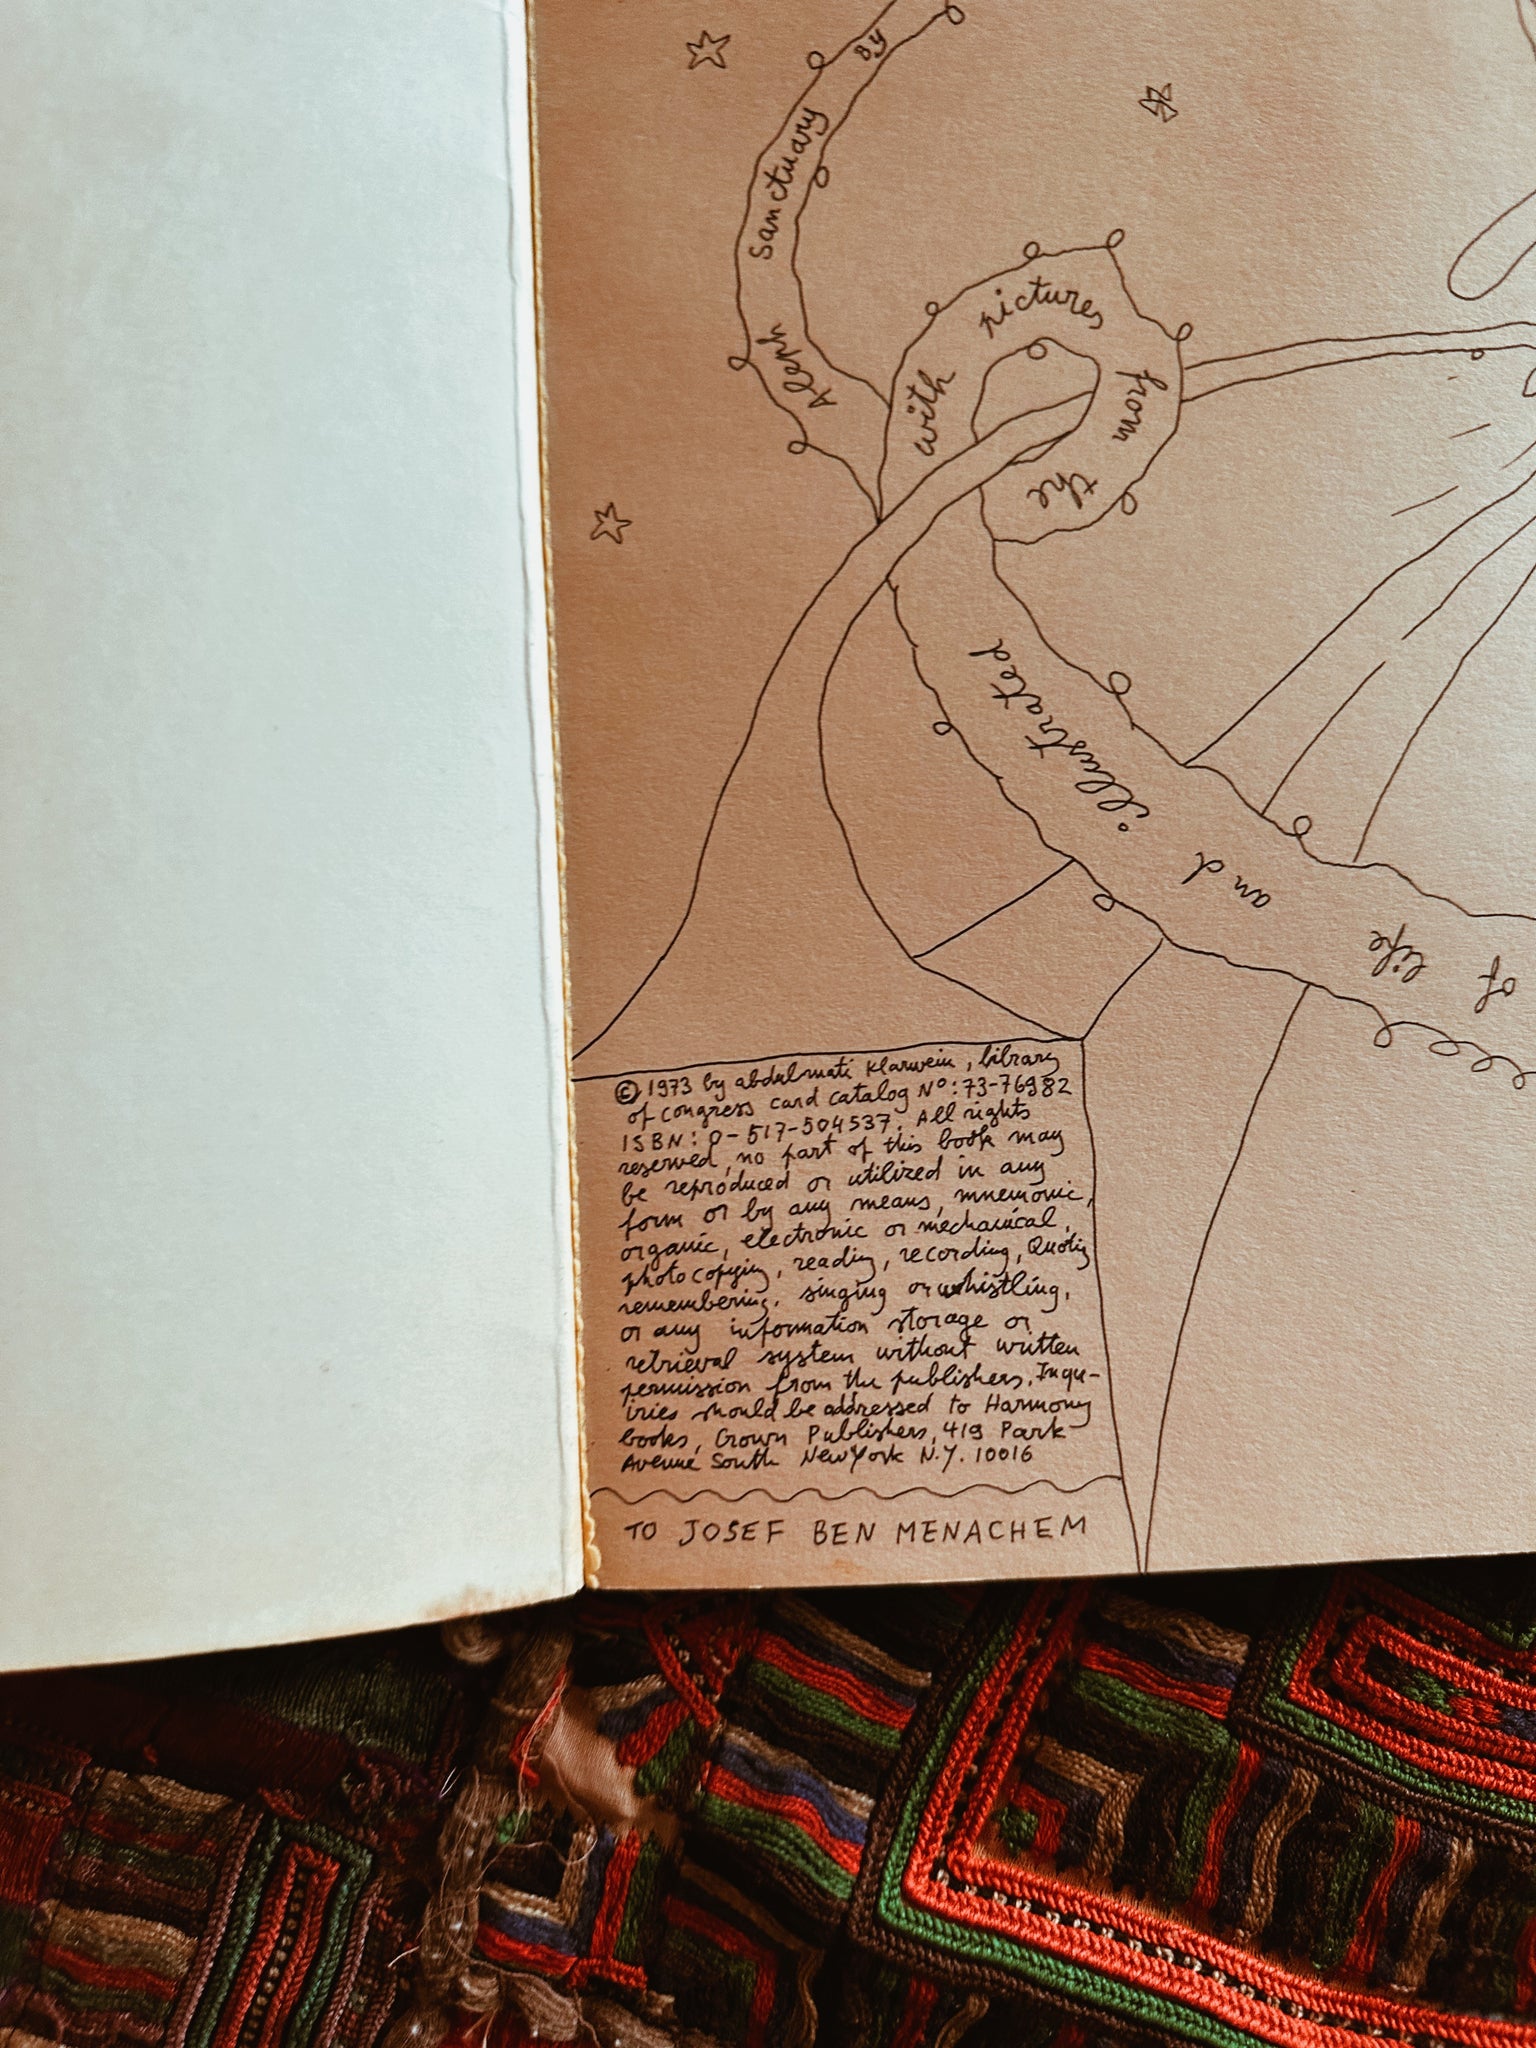 of life
and illustrated
the
from
pictures
with
Aleph Sanctuary
By
© 1973 by abdulmati Klarwein, library
of congress card catalog Nº: 73-76982
ISBN: 0-517-504537. All rights
reserved, no part of this book may
be reproduced or utilized in any
form or by any means, mnemonic,
organic, electronic or mechanical,
photocopying, reading, recording, Quoting
remembering, singing or whistling,
or any information storage or
retrieval system without written
permission from the publishers. Inqu-
iries should be addressed to Harmony
books, Crown Publishers, 419 Park
Avenue South New York N.Y. 10016
TO JOSEF BEN MENACHEM